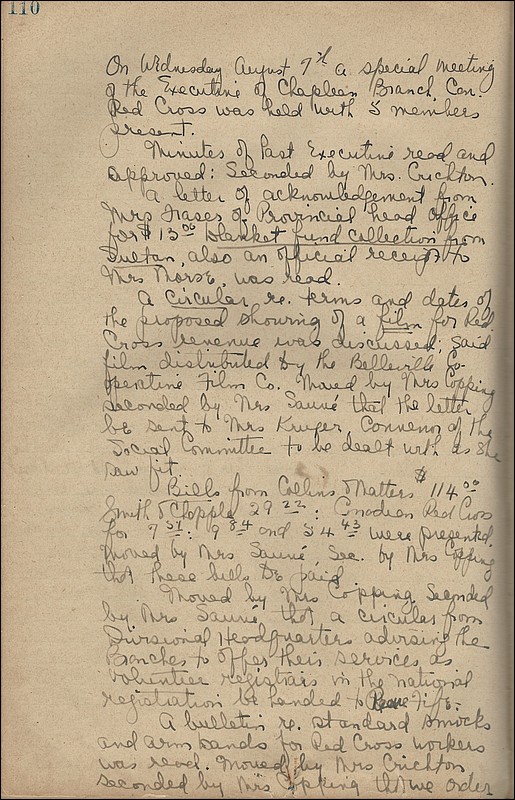 110
On Wednesday August 7th a special meeting
of the Executive of Chapleau Branch Can.
Red Cross was held with 5 members
present.
Minutes of Past Executive read and
approved: Seconded by Mrs. Crichton.
A letter of acknowledgement from
Mrs Fraser of Provincial head office
for $13.00 blanket fund collection from
Sultan, also an official receipt to
Mrs Morse, was read.
A circular re. terms and dates of
the proposed showing of a film for Red
Cross revenue was discussed; said
film distributed by the Belleville Co-
operative Film Co. Moved by Mrs Copping
seconded by Mrs Sauvé that the letter
be sent to Mrs Kruger, Convenor of the
Social Committee to be dealt with as she
saw fit.
Bills from Collins & Matters $114.00
Smith & Chapple 29.22: Canadian Red Cross
for 7.51: 9.84 and 54.43 were presented
moved by Mrs Sauvé, Sec. by Mrs Copping
that these bills be paid
Moved by Mrs Copping Seconded
by Mrs Sauvé that a circular from
Divisional Headquarters advising the
Branches to offer their services as
voluntier registrars in the national
registration be handed to Reeve Fife.
A bulletin re. standard smocks
and arm bands for Red Cross workers
was read. Moved by Mrs Crichton
seconded by Mrs Copping that we order